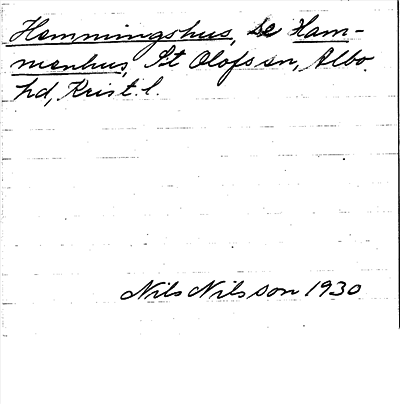 Hemmingshus, se Ham-
menhus, St Olofs sn, Albo
hd, Krist. l.
Nils Nilsson 1930